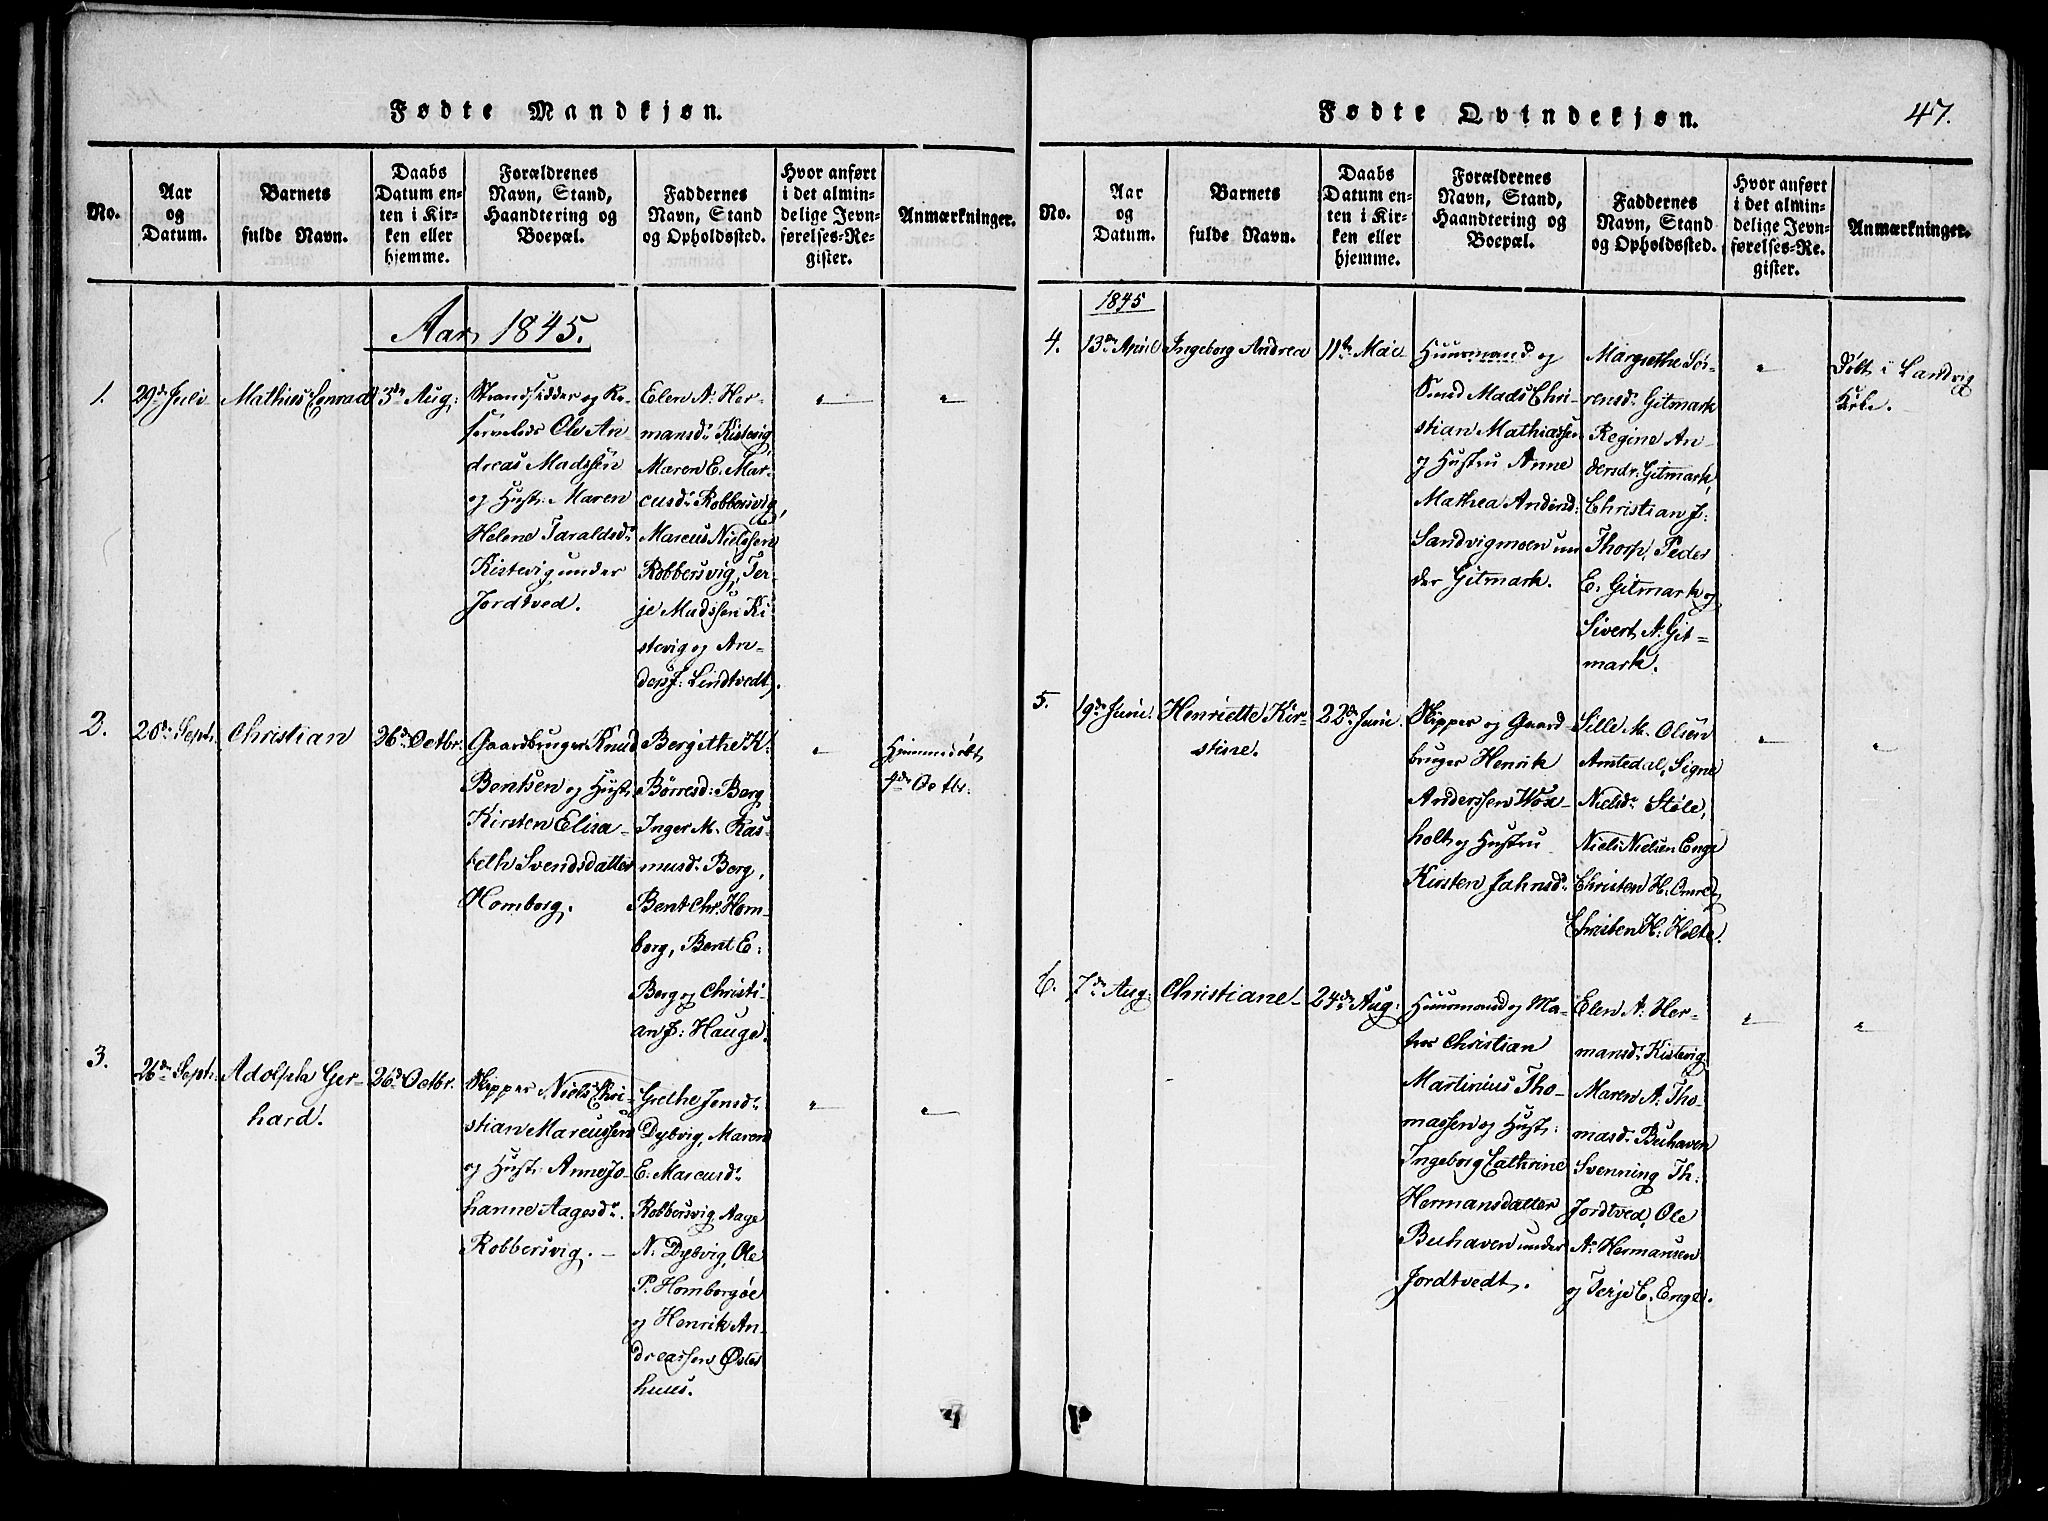 Fødte Mandkjøn.
No.
Aar
og
Datum.
Barnets
fulde Navn.
Daabs
Datum en-
ten i Kir-
ken eller
hjemme.
Forældrenes
Navn, Stand,
Haandtering og
Boepæl.
Faddernes
Navn, Stand
og Opholdssted.
Hvor anført
i det almin-
delige Jevn-
førelses-Re-
gister.
Anmærkninger.
Aar 1845.
1.
29de Juli
Mathias Conrad
3de Aug:
Strandsidder og Re-
Ole An-
dreas Madssen
og Hust: Maren
Helene Taraldsdr
Kistevig under
Jordtved.
Elen A: Her-
mansdr Kistevig,
Maren E. Mar-
cusdr Robbersvig,
Marcus Nielssen
Robbersvig, Ter-
je Madssen Ki-
stevig og An-
ders J: Lindtvedt.
"
"
2.
20de Septr.
Christian
26de Octbr.
Gaardbruger Knud
Bentsen og Hust:
Kirsten Elisa-
beth Svendsdatter
Homborg.
Bergithe K:
Børresd: Berg
Inger M. Ras-
musdr Berg,
Bent Chr. Hom-
borg, Bent E:
Berg og Christi-
an J: Hauge.
"
Hjemmedøbt
4de Octbr.
3.
26de Septr.
Adolph Ger-
hard.
26de Octbr.
Skipper Niels Chri-
stian Marcussen
og Hust: Anne Jo-
hanne Aagesdr.
Robbersvig. —
Grethe Jensdr
Dybvig, Maren
E. Marcusdr
Robbersvig Aage
N: Dybvig, Ole
P. Homborgøe
og Henrik An-
dreassen Øster
huus.
"
"
Fødte Qvindekjøn.
47.
No.
Aar
og
Datum.
Barnets
fulde Navn.
Daabs
Datum en-
ten i Kir-
ken eller
hjemme.
Forældrenes
Navn, Stand,
Haandtering og
Boepæl.
Faddernes
Navn, Stand
og Opholdssted.
Hvor anført
i det almin-
delige Jevn-
førelses-Re-
gister.
Anmærkninger.
1845
4.
13de April
Ingeborg Andrea
11te Mai
Huusmand og
Smed Mads Chri-
stian Mathiassen
og Hustru Anne
Mathea Andersd:
Sandvigmoen un
der Gitmark.
Margrethe Sø-
rensdr Gitmark
Regine An-
dersdr. Gitmark,
Christian J:
Thorp, Peder
E. Gitmark og
Sivert A. Git-
mark.
"
Døbt i Landvig
Kirke.
5.
19de Juni
Henriette Kir-
stine.
22de Juni.
Skipper og Gaard
bruger Henrik
Anderssen Wox-
holt og Hustru
Kirsten Jahnsdr
Sille M. Olsen
Amtedal, Signe
Nielsdr Støle,
Niels Nielsen Enge
Christen H. Omre og
Christen H: Holte.
"
"
6.
7de Aug:
Christiane
24de Aug:
Huusmand og Ma-
tros Christian
Martinius Tho-
massen og Hustr:
Ingeborg Cathrine
Hermansdatter
Buhaven under
Jordtvedt.
Elen A: Her-
mansdr Kistevig
Maren A: Tho-
masdr Buhaven
Svenning Th:
Jordtved, Ole
A: Hermansen
og Terje C. Enge.
"
"